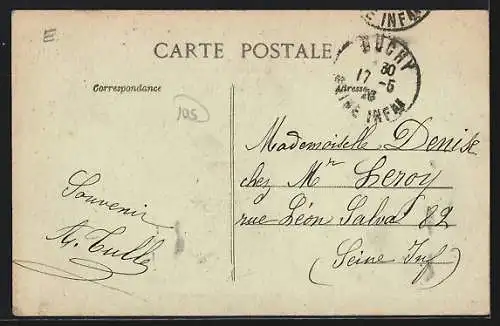 E INFRE
CARTE POSTALE
BUCHY
30
17 -5
28
SEINE INFRE
Correspondance
Adresse
105
Mademoiselle Denise
chez Mr Leroy
rue Léon Salva 82
(Seine Inf)
Souvenir
A. Tulle